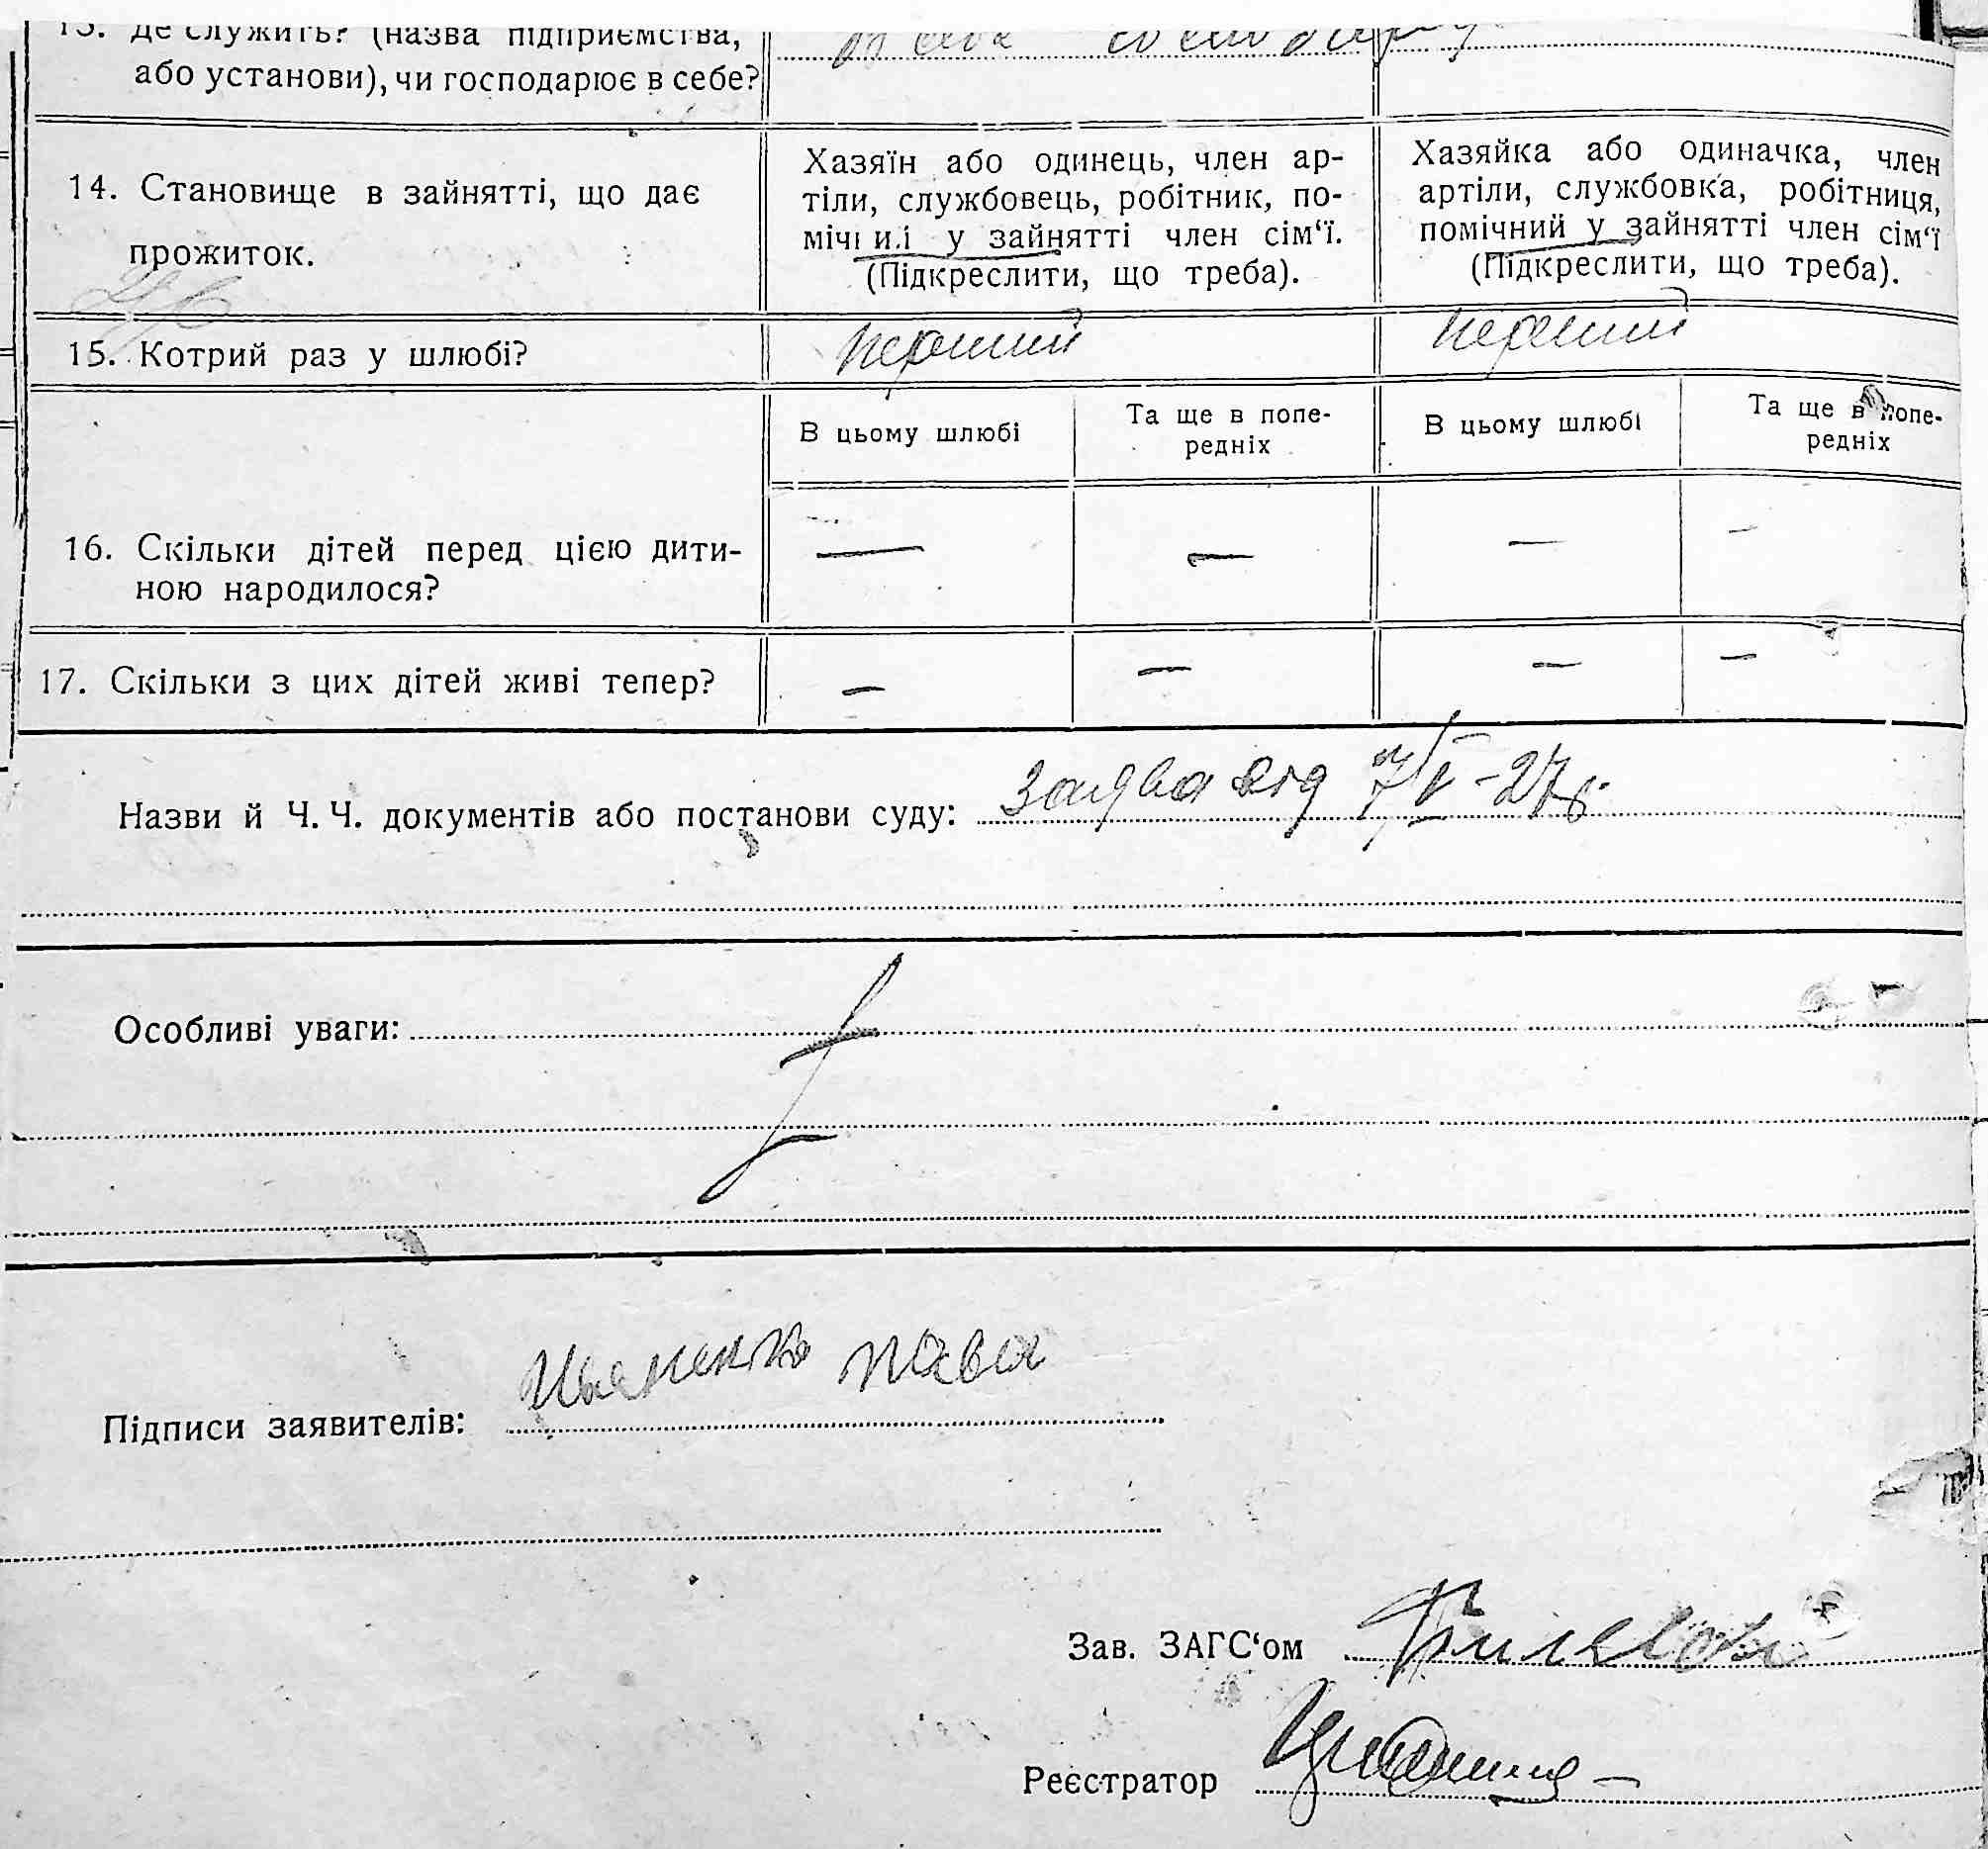 13. Де служить? (назва підприємства,
або установи), чи господарює в себе?
14. Становище в зайнятті, що дає
прожиток.
Хазяїн або одинець, член ар-
тіли, службовець, робітник, по-
мічний у зайнятті член сім‘ї.
(Підкреслити, що треба).
Хазяйка або одиначка, член
артіли, службовка, робітниця,
помічний у зайнятті член сім‘ї
(Підкреслити, що треба).
15. Котрий раз у шлюбі?
перший
перший
В цьому шлюбі
Та ще в попе-
редніх
В цьому шлюбі
Та ще в попе-
редніх
16. Скільки дітей перед цією дити-
ною народилося?
— — — —
17. Скільки з цих дітей живі тепер?
— — — —
Назви й Ч. Ч. документів або постанови суду: Заява від 7/V-27р.
Особливі уваги:
Підписи заявителів:
Зав. ЗАГС‘ом
Реєстратор